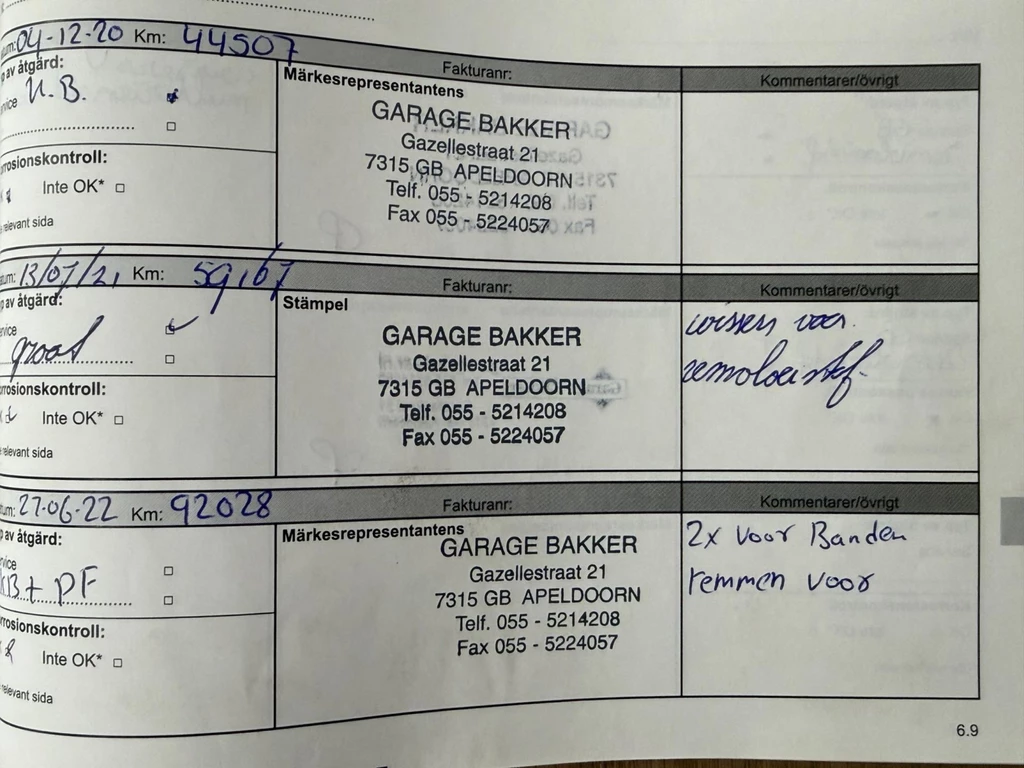 um: 04-12-20 Km: 44507
p av åtgärd:
rvice K.B.
rrosionskontroll:
Inte OK* □
e relevant sida
Märkesrepresentantens
Fakturanr:
GARAGE BAKKER
Gazellestraat 21
7315 GB APELDOORN
Telf. 055 - 5214208
Fax 055 - 5224057
Kommentarer/övrigt
um: 13/07/21, Km: 59,167
p av åtgärd:
rvice
groot
rrosionskontroll:
Inte OK* □
e relevant sida
Fakturanr:
Stämpel
GARAGE BAKKER
Gazellestraat 21
7315 GB APELDOORN
Telf. 055 - 5214208
Fax 055 - 5224057
Kommentarer/övrigt
wissers voor.
remvloeistof.
um: 27-06-22 Km: 92028
p av åtgärd:
rvice
KB + PF
rrosionskontroll:
Inte OK* □
e relevant sida
Fakturanr:
Märkesrepresentantens
GARAGE BAKKER
Gazellestraat 21
7315 GB APELDOORN
Telf. 055 - 5214208
Fax 055 - 5224057
Kommentarer/övrigt
2x voor Banden
remmen voor
6.9